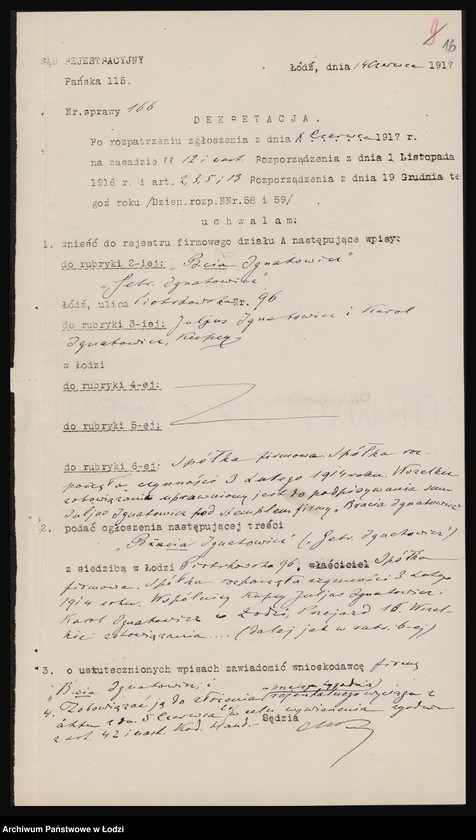 9 16
SĄD REJESTRACYJNY
Łódź, dnia 14 Czerwca 1917
Pańska 115.
Nr. sprawy 166
DEKRETACJA.
Po rozpatrzeniu zgłoszenia z dnia 8 Czerwca 1917 r.
na zasadzie §§ 12 i nast. Rozporządzenia z dnia 1 Listopada
1916 r. i art. 2, 3, 5 i 13 Rozporządzenia z dnia 19 Grudnia te
goż roku /Dzien.rozp.NNr.58 i 59/
uchwalam:
1. wnieść do rejestru firmowego działu A następujące wpisy:
do rubryki 2-iej: "Bcia Ignatowicz"
"Gebr. Ignatowicz"
Łódź, ulica Piotrkowska Nr. 96
do rubryki 3-iej: Juljus Ignatowicz i Karol
Ignatowicz, Kupcy
w Łodzi
do rubryki 4-ej:
do rubryki 5-ej:
do rubryki 6-ej: Spółka firmowa. Spółka roz-
poczęła czynności 3 Lutego 1914 roku. Wszelkie
zobowiązania uprawniony jest do podpisywania sam
Juljus Ignatowicz pod stemplem firmy "Bracia Ignatowicz"
2. podać ogłoszenia następującej treści
"Bracia Ignatowicz" ("Gebr. Ignatowicz")
z siedzibą w Łodzi Piotrkowska 96, właściciel Spółka
firmowa. Spółka rozpoczęła czynności 3 Lutego
1914 roku. Wspólnicy Kupcy Juljus Ignatowicz i
Karol Ignatowicz w Łodzi, Przejazd 16. Wszel-
kie zobowiązania .... (dalej jak w rubr. 6-ej)
3. o uskutecznionych wpisach zawiadomić wnioskodawcę firmę
"Bcia Ignatowicz" i
4. Zobowiązać ją do złożenia rejentalnego wyciągu z
aktu z dn. 5 Czerwca w celu wywieszenia zgodnie
z art. 42 i nast. Kod. Hand.
Sędzia
Archiwum Państwowe w Łodzi